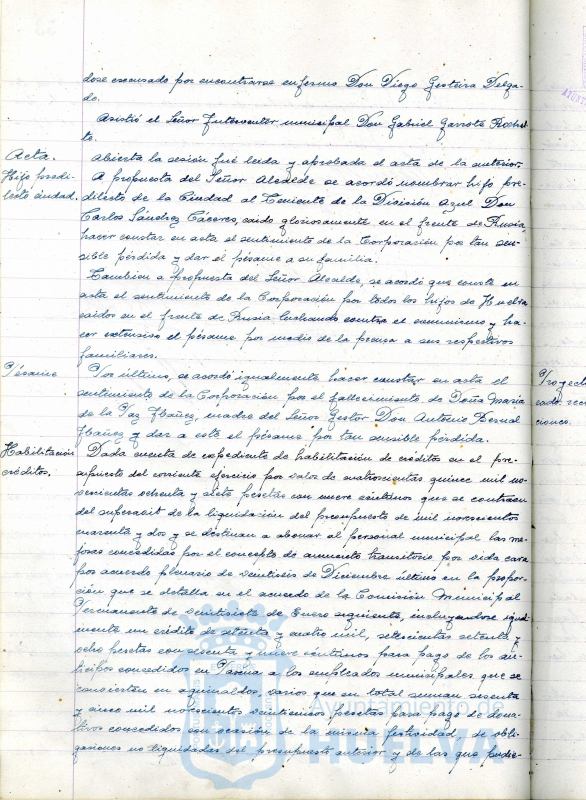 dose excusado por encontrarse enfermo Don Diego Gesteira Delga-
do.
Asistió el Señor Interventor municipal Don Gabriel Garrote
to.
Acta.
Abierta la sesión fué leida y aprobada el acta de la anterior
Hijo predi-
lecto ciudad.
A propuesta del Señor Alcalde se acordó nombrar hijo pre-
dilecto de la Ciudad al Teniente de la División Azul Don
Carlos Sánchez Cáceres, caido gloriosamente en el frente de Rusia,
hacer constar en acta el sentimiento de la Corporación por tan sen-
sible pérdida y dar el pésame a su familia.
Tambien a propuesta del Señor Alcalde, se acordó que conste en
acta el sentimiento de la Corporación por todos los hijos de Huelva
caidos en el frente de Rusia luchando contra el comunismo y ha-
cer extensivo el pésame por medio de la prensa a sus respectivos
familiares.
Pésame
Por último, se acordó igualmente hacer constar en acta el
sentimiento de la Corporación por el fallecimiento de Doña Maria
de la Paz Ibañez, madre del Señor Gestor Don Antonio Bernal
Ibañez y dar a este el pésame por tan sensible pérdida.
Habilitación
créditos.
Dada cuenta de expediente de habilitación de créditos en el pre-
supuesto del corriente ejercicio por valor de cuatrocientas quince mil no-
vecientas ochenta y siete pesetas con nueve céntimos que se contraen
del superavit de la liquidación del presupuesto de mil novecientos
cuarenta y dos y se destinan a abonar al personal municipal las me-
joras concedidas por el concepto de aumento transitorio por vida cara
por acuerdo plenario de veintiseis de Diciembre último en la propor-
ción que se detalla en el acuerdo de la Comisión Municipal
Permanente de veintisiete de Enero siguiente, incluyendose igual-
mente un crédito de setenta y cuatro mil, setecientas setenta y
ocho pesetas con sesenta y nueve céntimos para pago de los an-
ticipos concedidos en Pascua a los empleados municipales que se
convierten en aguinaldos, varios que en total suman sesenta
y cinco mil novecientas veinticinco pesetas para pago de dona-
tivos concedidos con ocasión de la misma festividad, de obli-
gaciones no liquidadas del presupuesto anterior y de las que pudie-
Ayuntamiento de
HUELVA